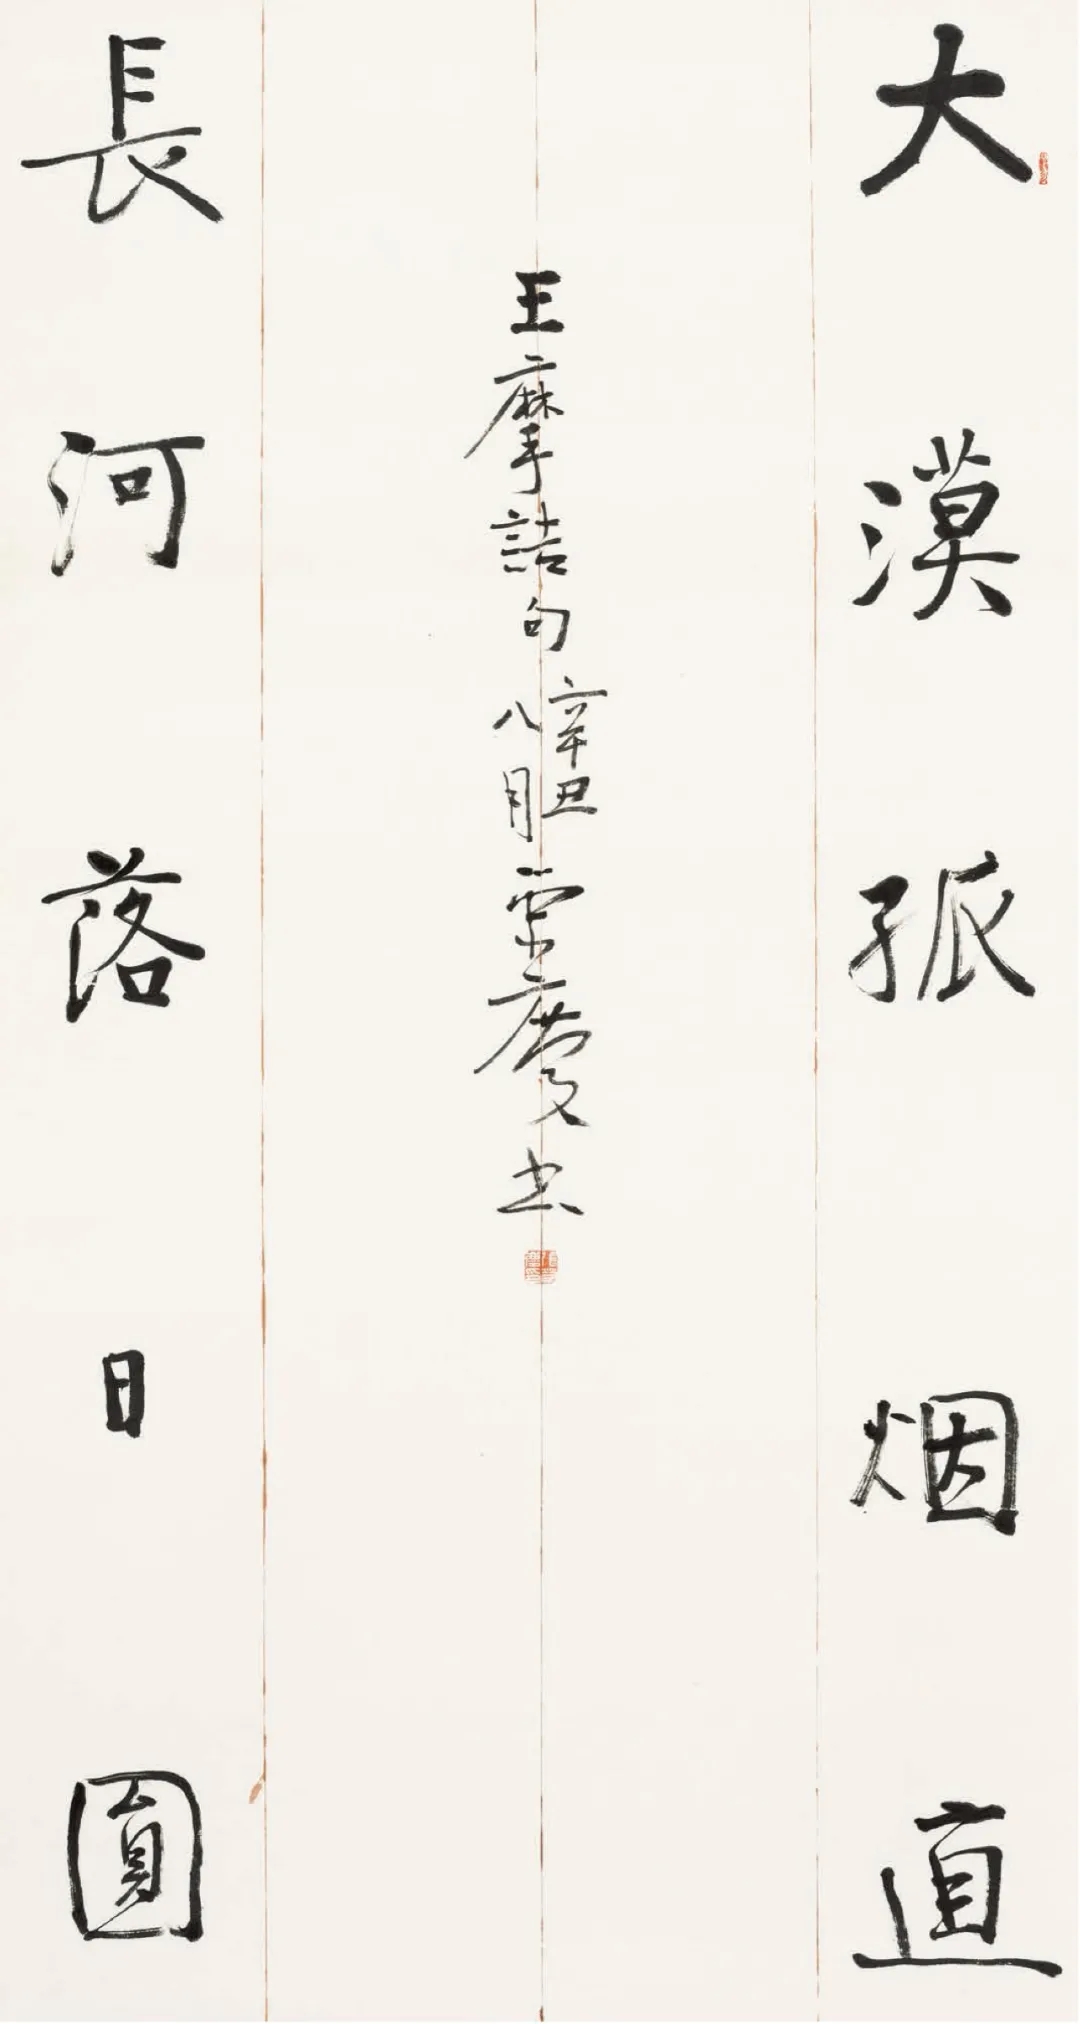 大漠孤烟直
王摩詰句
辛丑
八月
雲慶书
長河落日圓